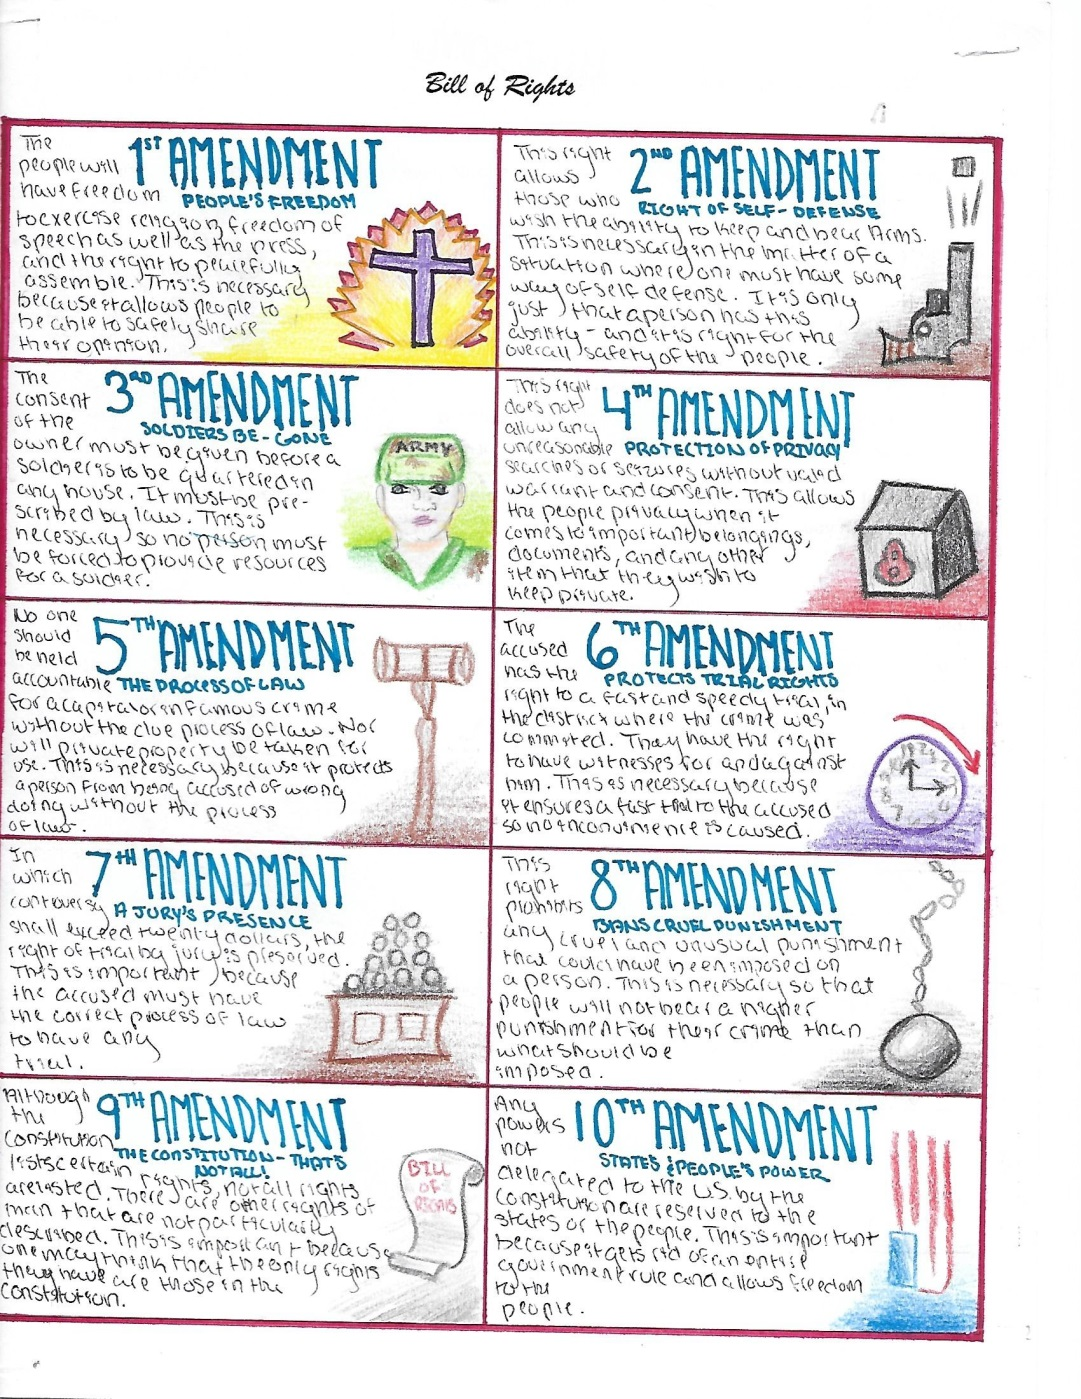 Bill of Rights
1ST AMENDMENT
PEOPLE'S FREEDOM
The
people will
have freedom
to exercise religion, freedom of
speech as well as the press,
and the right to peacefully
assemble. This is necessary
because it allows people to
be able to safely share
their opinion.
2ND AMENDMENT
RIGHT OF SELF-DEFENSE
This right
allows
those who
wish the ability to keep and bear Arms.
This is necessary in the matter of a
situation where one must have some
way of self defense. It is only
just that a person has this
ability - and it is right for the
overall safety of the people.
3RD AMENDMENT
SOLDIERS BE-GONE
The
consent
of the
owner must be given before a
soldier is to be quartered in
any house. It must be pre-
scribed by law. This is
necessary so no person must
be forced to provide resources
for a soldier.
ARMY
4TH AMENDMENT
PROTECTION OF PRIVACY
This right
does not
allow any
unreasonable
searches or seizures without valid
warrant and consent. This allows
the people privacy when it
comes to important belongings,
documents, and any other
item that they wish to
keep private.
5TH AMENDMENT
THE PROCESS OF LAW
No one
should
be held
accountable
for a capital or infamous crime
without the due process of law. Nor
will private property be taken for
use. This is necessary because it protects
a person from being accused of wrong
doing without the process
of law.
6TH AMENDMENT
PROTECTS TRIAL RIGHTS
The
accused
has the
right to a fast and speedy trial, in
the district where the crime was
committed. They have the right
to have witnesses for and against
him. This is necessary because
it ensures a fast trial to the accused
so no inconvinience is caused.
7TH AMENDMENT
A JURY'S PRESENCE
In
which
controversy
shall exceed twenty dollars, the
right of trial by jury is preserved.
This is important because
the accused must have
the correct process of law
to have any
trial.
8TH AMENDMENT
BANS CRUEL PUNISHMENT
This
right
prohibits
any cruel and unusual punishment
that could have been imposed on
a person. This is necessary so that
people will not bear a higher
punishment for their crime than
what should be
imposed.
9TH AMENDMENT
THE CONSTITUTION - THAT'S
NOT ALL!
Although
the
Constitution
lists certain rights, not all rights
are listed. There are other rights of
man that are not particularly
described. This is important because
one may think that the only rights
they have are those in the
Constitution.
BILL
OF
RIGHTS
10TH AMENDMENT
STATES & PEOPLE'S POWER
Any
powers
not
delegated to the U.S. by the
Constitution are reserved to the
states or the people. This is important
because it gets rid of an entire
government rule and allows freedom
to the
people.